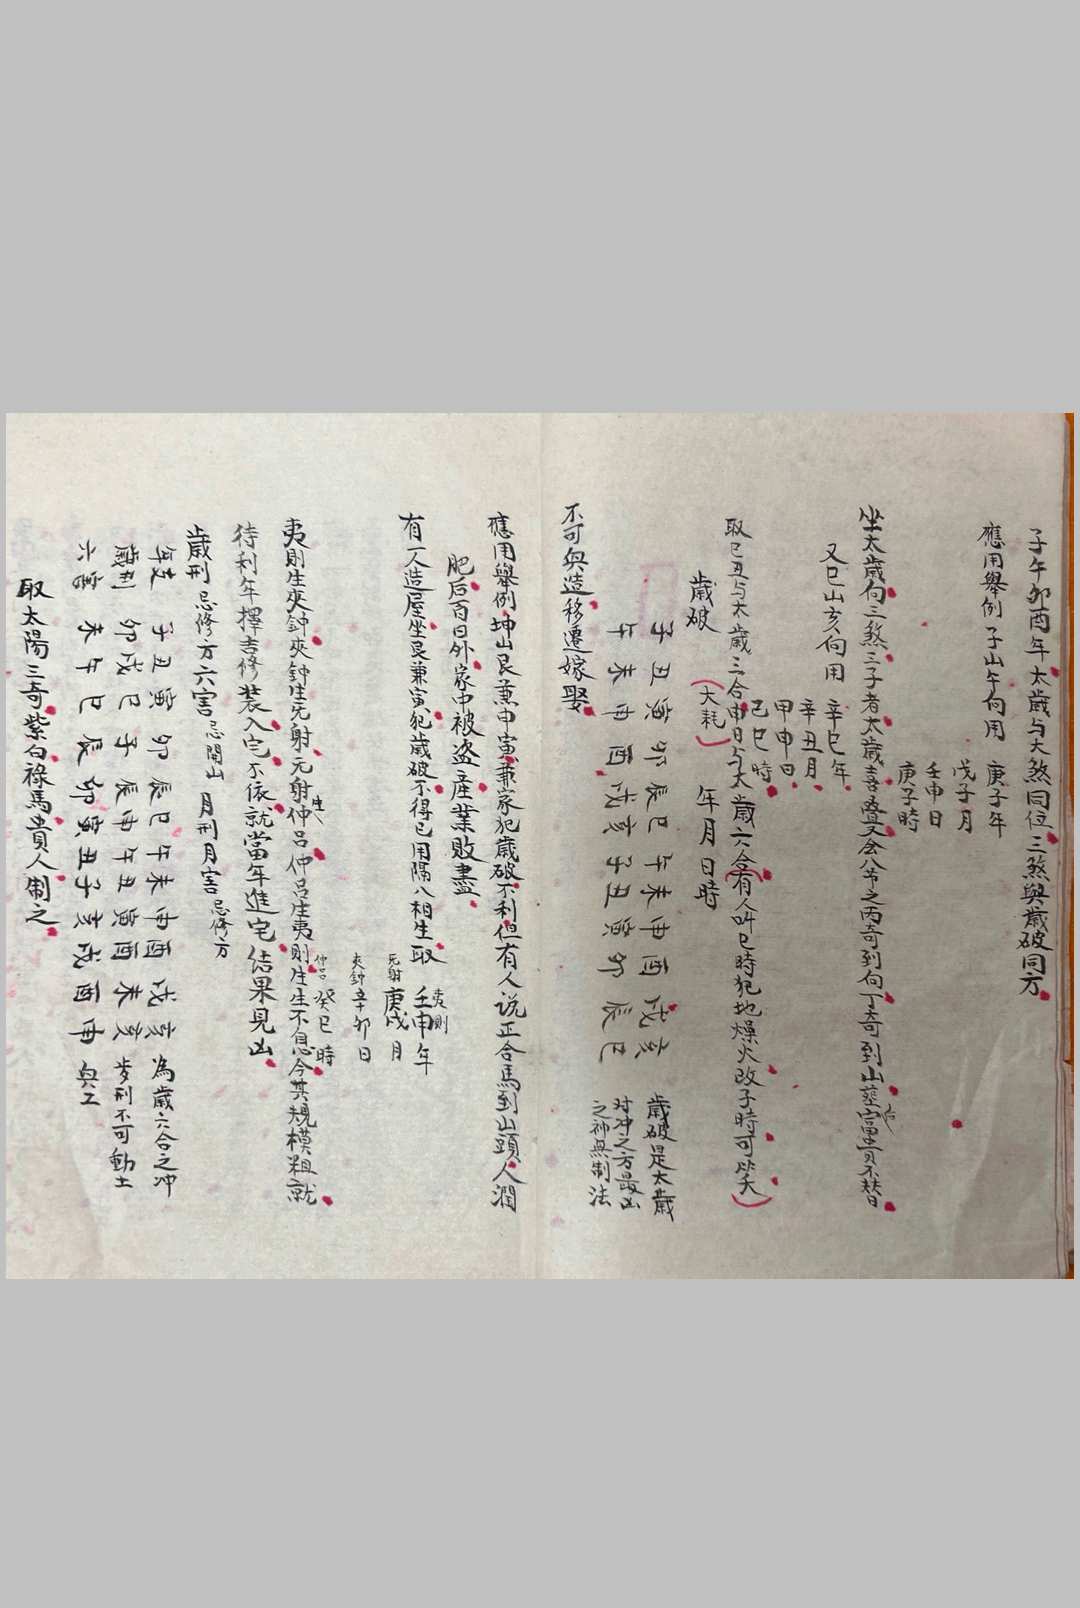 子午卯酉年太歲与大煞同位三煞與歲破同方
應用舉例子山午向用
庚子年
戊子月
壬申日
庚子時
坐太歲向三煞三子者太歲喜叠又会八节之丙奇到向丁奇到山塟富貴不替
又巳山亥向用
辛巳年
辛丑月
甲申日
己巳時
取巳丑与太歲三合申日与太歲六合(有人叫巳時犯地燥火改子時可毕夭)
歲破(大耗)年月日時
子丑寅卯辰巳午未申酉戌亥
午未申酉戌亥子丑寅卯辰巳
歲破是太歲
对冲之方最凶
之神無制法
不可興造移遷嫁娶
應用舉例坤山艮兼申寅兼家犯歲破不利但有人说正合馬到山頭人潤
肥后百日外家中被盗產業敗盡
有人造屋坐艮兼寅犯歲破不得已用隔八相生取
夷則壬申年
无射庚戌月
夹鍾辛卯日
仲吕癸巳時
夷則生夾鍾夾鍾生无射无射生仲吕仲吕生夷則生生不息今其規模粗就
待利年擇吉修装入宅不依就當年進宅結果見凶
歲刑忌修方六害忌開山月刑月害忌修方
年支子丑寅卯辰巳午未申酉戌亥為歲六合之冲
歲刑卯戌巳子辰申午丑寅酉未亥歲刑不可動土
六害未午巳辰卯寅丑子亥戌酉申興工
取太陽三奇紫白祿馬貴人制之